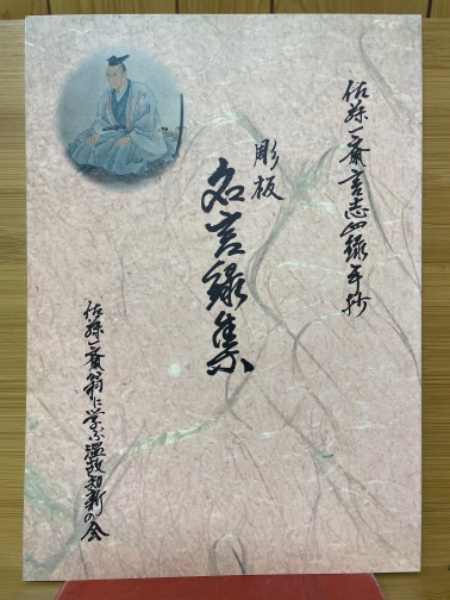 佐藤一斎言志四録手抄
彫板
名言録集
佐藤一斎翁に学ぶ温故知新の会